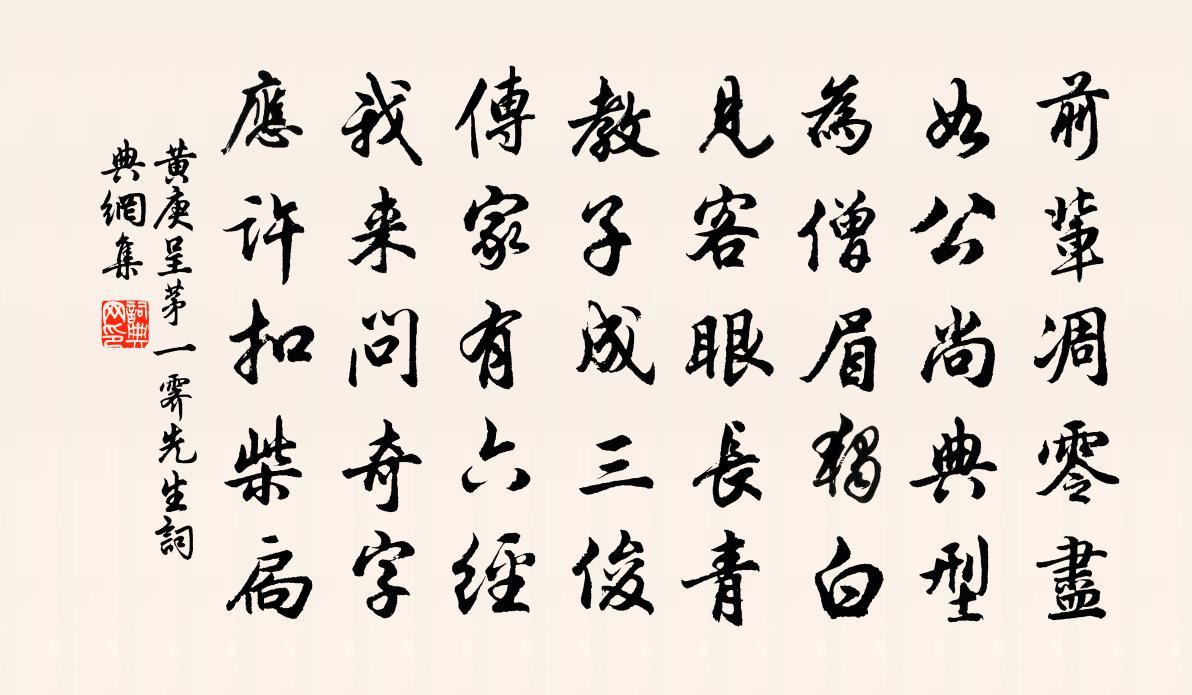 前輩凋零盡
如公尚典型
為僧眉獨白
見客眼長青
教子成三俊
傳家有六經
我来問奇字
應許扣柴扃
黄庚呈茅一霽先生詞
典網集
詞典
网印